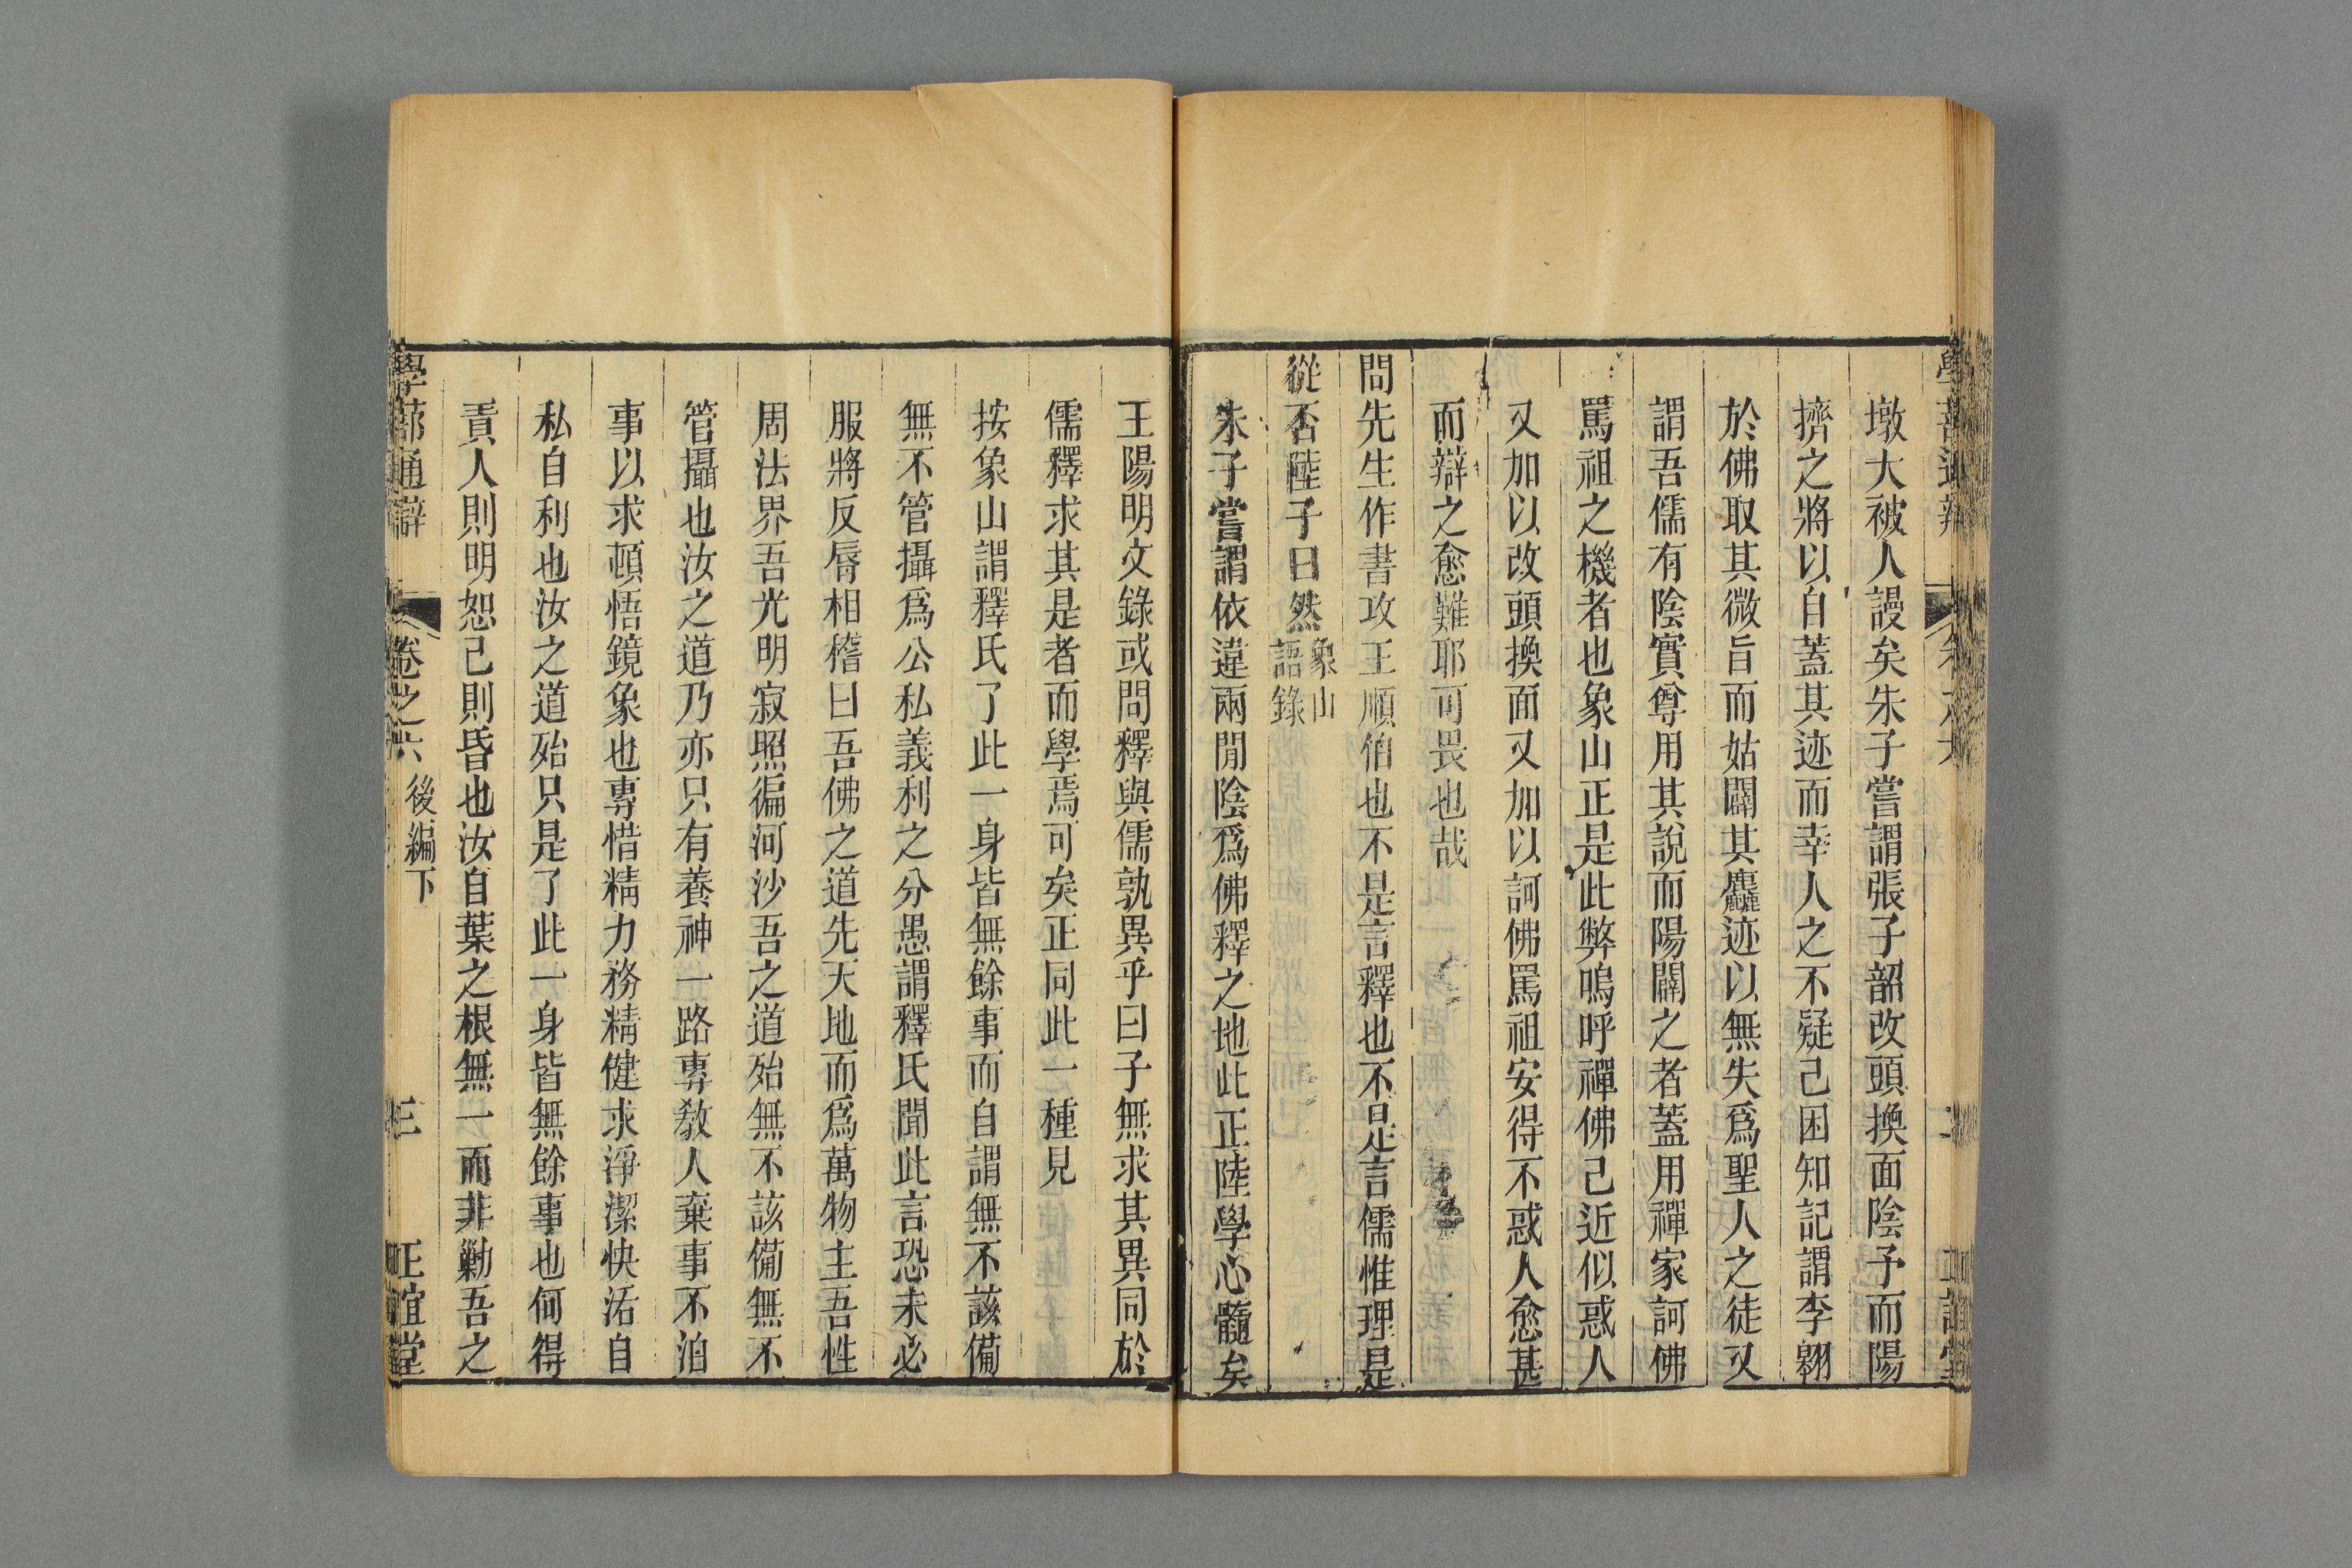 墩大被人謾矣朱子嘗謂張子韶改頭換面陰予而陽
擠之將以自蓋其迹而幸人之不疑己困知記謂李翱
於佛取其微旨而姑闢其麤迹以無失爲聖人之徒又
謂吾儒有陰實尊用其說而陽闢之者蓋用禪家訶佛
罵祖之機者也象山正是此弊嗚呼禪佛己近似惑人
又加以改頭換面又加以訶佛罵祖安得不惑人愈甚
而辯之愈難耶可畏也哉
問先生作書攻王順伯也不是言釋也不是言儒惟理是
從否陸子曰然象山語錄
朱子嘗謂依違兩閒陰爲佛釋之地此正陸學心髓矣
王陽明文錄或問釋與儒孰異乎曰子無求其異同於
儒釋求其是者而學焉可矣正同此一種見
按象山謂釋氏了此一身皆無餘事而自謂無不該備
無不管攝爲公私義利之分愚謂釋氏聞此言恐未必
服將反脣相稽曰吾佛之道先天地而爲萬物主吾性
周法界吾光明寂照徧河沙吾之道殆無不該備無不
管攝也汝之道乃亦只有養神一路專敎人棄事不泊
事以求頓悟鏡象也專惜精力務精健求淨潔快活自
私自利也汝之道殆只是了此一身皆無餘事也何得
責人則明恕己則昏也汝自葉之根無一而非勦吾之
學蔀通辯 卷之六 後編下 三 正誼堂